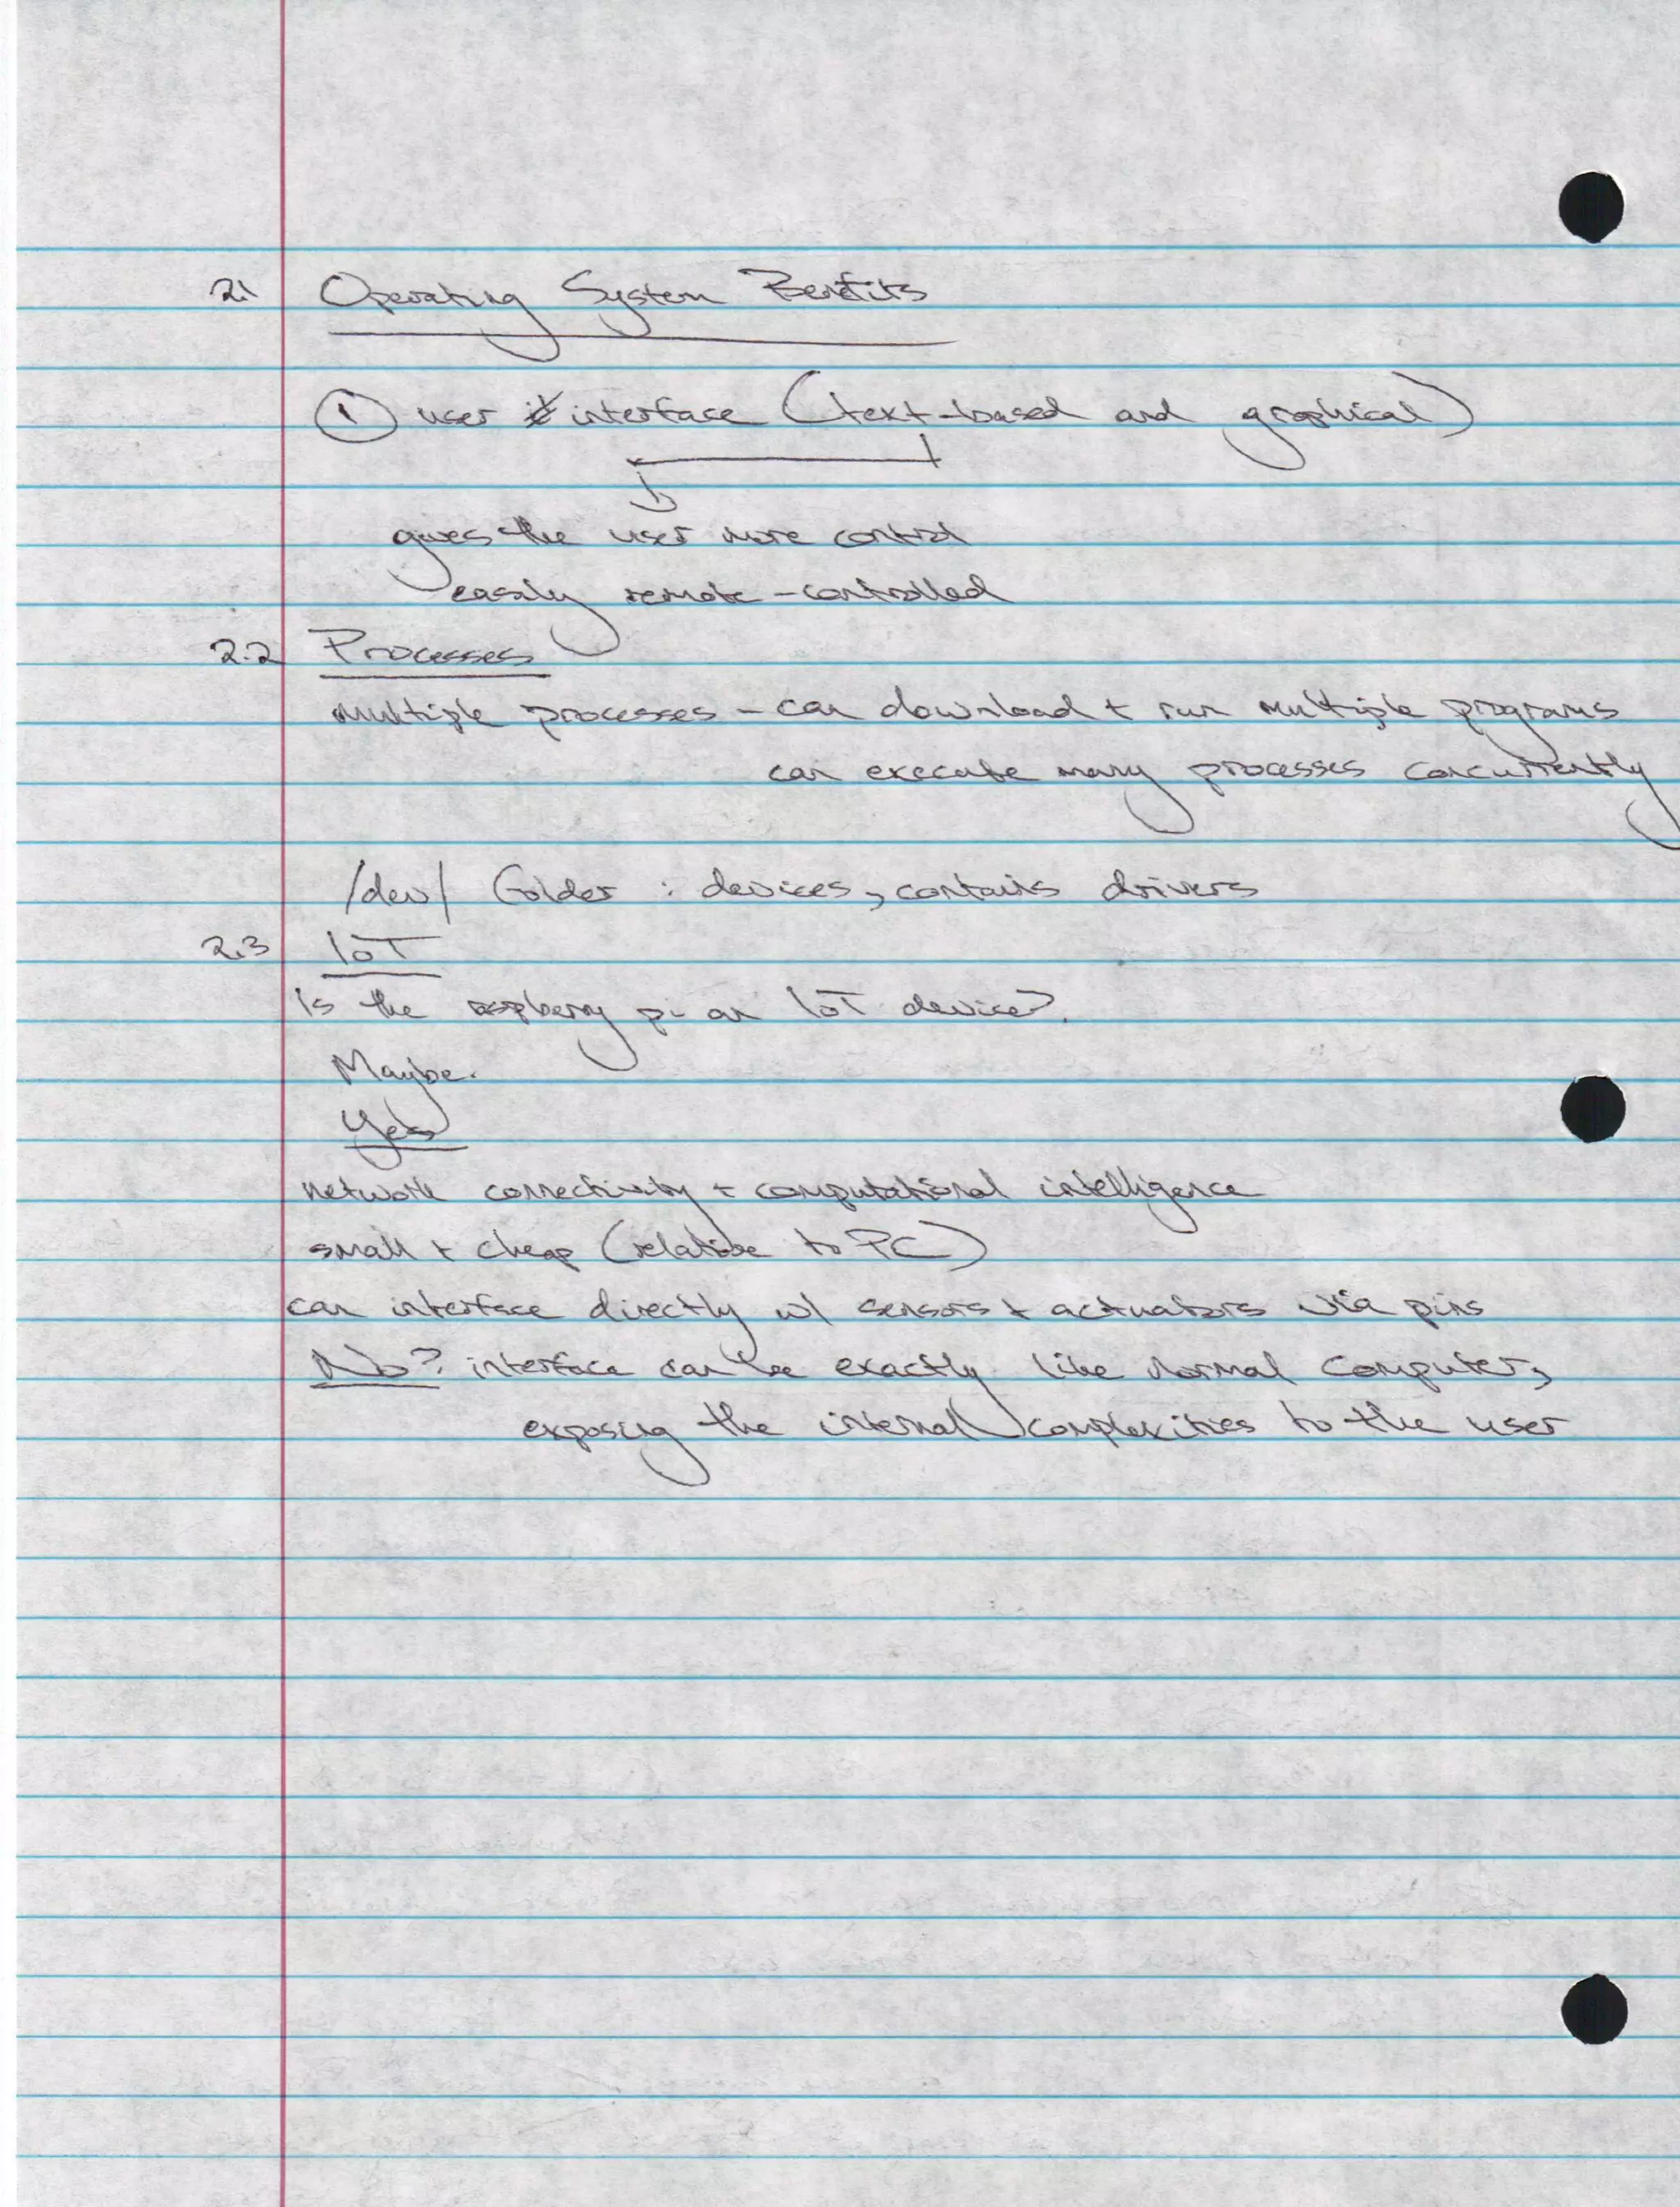 2.1 Operating System Benefits
① user interface (text-based and graphical)
gives the user more control
easily remote-controlled
2.2 Processes
multiple processes - can download + run multiple programs
can execute many processes concurrently
/dev/ folder : devices, contains drivers
2.3 IoT
Is the raspberry pi an IoT device?
Maybe.
Yes
network connectivity + computational intelligence
small + cheap (relative to PC)
can interface directly w/ sensors + actuators via pins
No? interface can be exactly like normal computer,
exposing the internal complexities to the user